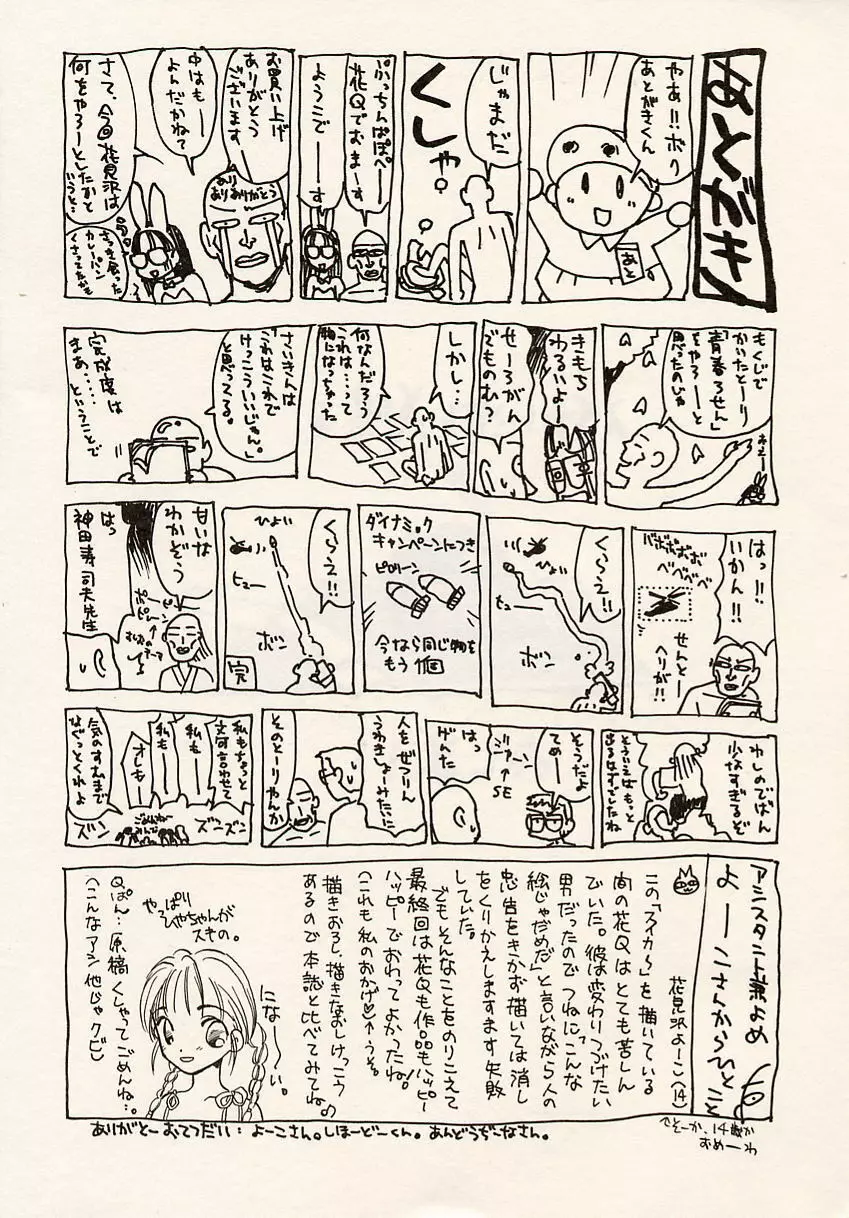 あとがき
やあ!!ボク
あとがきくん
あと
じゃまだ
くしゃ
ぷっちんぱぽペー
花Qでおまーす
ようこそーーす
お買い上げ
ありがとう
ございます
あり
ありありがとう
中はもー
よんだかねて
さて、今回花見沢は
何をやろーとしたかと
いうと…
さっき食った
カレーパン
くさってたかも
もくじで
かいたとーり
「青春ろせん」
をやろーと
思ったのじゃ
ねえー
きもち
わるいよー
せーろがん
でものむ?
しかし…
何なんだろう
これは…って
物になっちゃった
さいきんは
「これはこれで
けっこういいじゃん。」
と思ってくる。
完成度は
まあ……
ということで
はっ!!
いかん!!
バボボボボボ
ベベベベベ
せんとー
ヘリが!!
くらえ!!
ひょい
ヒュー
ボン
ダイナミック
キャンペーンにつき
ピローン
今なら同じ物を
もう1個
くらえ!!
ひょい
ヒュー
ボン
完
甘いな
わかぞう
ポーピン
ポピーン
はっ
神田寿司夫先生
わしのでばん
少なすぎるぞ
そういえばもっと
出るはずでしたね
そうだよ
てめー
ジャーン
↑
SE
はっ
げんた
人をぜつりん
うわきしょーみたいに
そのとーりやんか
私もちょっと
文句言わせて
私も
私も
オレもー
ごめんねー
みんなー
気のすむまで
なぐっとくれよ
ズン
ズーズン
アシスタント兼よめ
よーこさんからひとこと
花見沢よーこ(14)
この「スイカら」を描いている
間の花Qはとても苦しん
でいた。彼は変わりつづけたい
男だったのでつねに"こんな
絵じゃだめだ"と言いながら人の
忠告をきかず描いては消し
をくりかえしますます失敗
していた。
でもそんなことをのりこえて
最終回は花Qも作品もハッピー
ハッピーでおわってよかったね!
(これも私のおかげ♡)↑うそ。
描きおろし、描きなおしけっこう
あるので本誌と比べてみてね。
やっぱり
ひやちゃんが
スキの。
になーーい。
Qぱん…原稿くしゃってごめんね…。
(こんなアシ他じゃクビ)
そーか、14歳か
おめーわ
ありがとーおてつだい:よーこさん。しほーどーくん。あんどうぢーなさん。